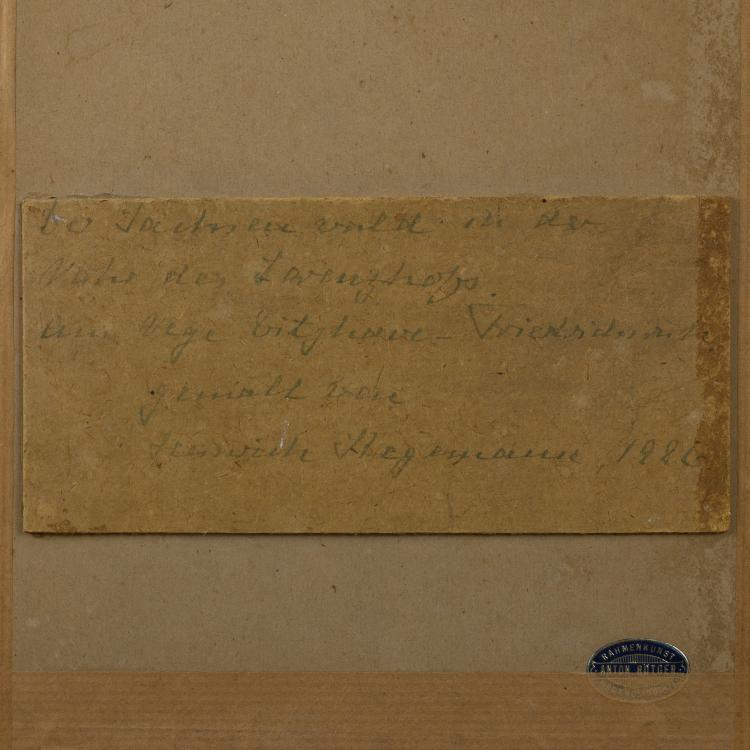 Sachsenwald in der
Nähe des Lorenzhofs.
am Wege Witzhave - Friedrichsruh
gemalt von
Heinrich Stegemann, 1926
RAHMENKUNST
ANTON RÜTGER